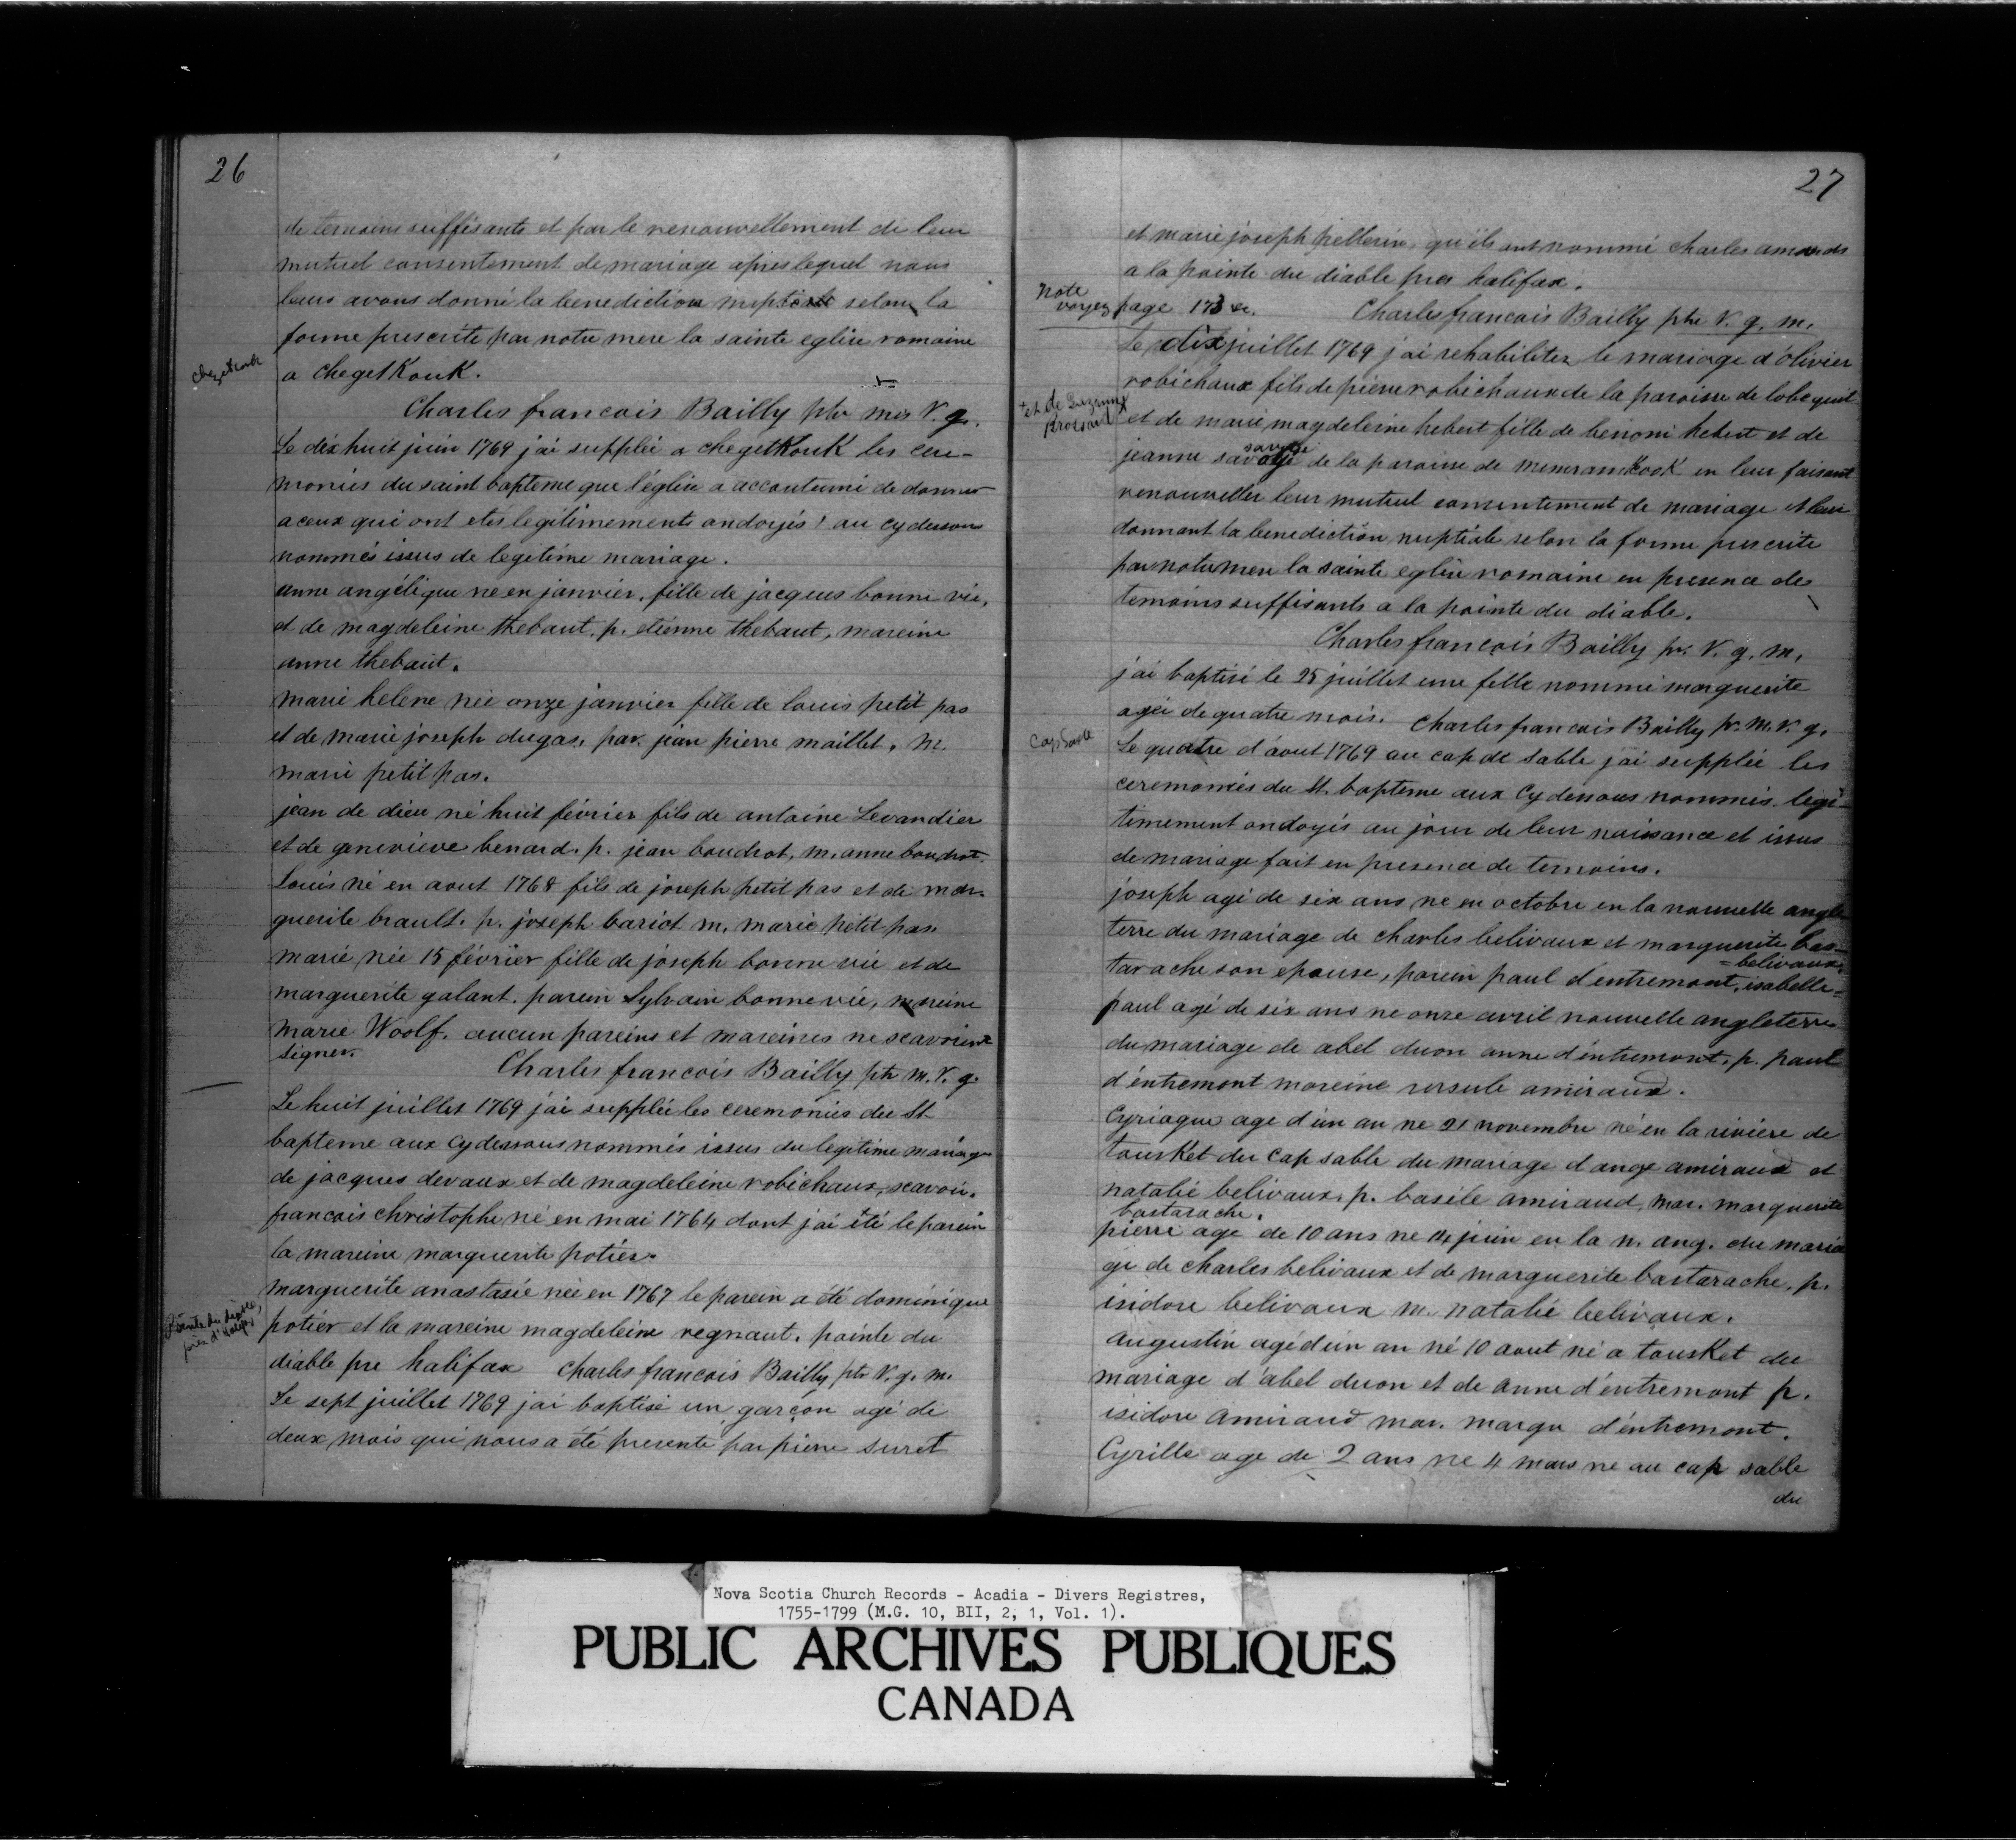 26
de temoins suffisants et par le renouvellement de leur
mutuel consentement de mariage apres lequel nous
leurs avons donné la benediction nuptiale selon la
forme prescrite par notre mere la sainte eglise romaine
chegetkouk
a chegetKouK.
Charles francois Bailly ptr mis V. g.
Le dix huit juin 1769 j'ai supplée a chegetKouK les cere-
monies du saint bapteme que l'église a accoutumé de donner
a ceux qui ont etés legitimements ondoyés! au cydessous
nommés issus de legitime mariage.
anne angélique ne en janvier, fille de jacques bonne vie,
et de magdeleine thebaut, p. etienne thebaut, mareine
anne thebaut.
marie helene née onze janvier fille de louis petit pas
et de marie joseph dugas, par. jean pierre maillet, m.
marie petit pas.
jean de dieu né huit février fils de antoine Levandier
et de genevieve benard. p. jean boudrot, m. anne boudrot.
Louis né en aout 1768 fils de joseph petit pas et de mar-
guerite brault. p. joseph bariot m. marie petit pas.
marie née 15 février fille de joseph bonne vie et de
marguerite galant. parein Sylvain bonnevie, mareine
marie Woolf. aucun pareins et mareines ne scavoient
signer.
Charles francois Bailly ptr m. V. g.
Le huit juillet 1769 j'ai supplée les ceremonies du St
bapteme aux cydessous nommés issus du legitime mariage
de jacques devaux et de magdeleine robichaux, scavoir.
francois christophe né en mai 1764 dont j'ai été le parein
la mareine marguerite potier.
marguerite anastasie née en 1767 le parein a été dominique
Pointe du diable,
près d'Halifax
potier et la mareine magdeleine regnaut. pointe du
diable pre halifax Charles francois Bailly ptr V. g. m.
Le sept juillet 1769 j'ai baptisé un garçon agé de
deux mois qui nous a été presenté par pierre suret
27
et marie joseph pellerin, qu'ils ont nommé charles amands
a la pointe du diable pres halifax.
Note
voyez page 173 &c. Charles francois Bailly ptr V. g. m.
Le dix juillet 1769 j'ai rehabilitez le mariage d'olivier
robichaux fils de pierre robichaux de la paroisse de cobequit
+ et de Suzanne
Brossard
et de marie magdeleine hebert fille de benoni hebert et de
savoie
jeanne savoye de la paroisse de memramKooK en leur faisant
renouveller leur mutuel consentement de mariage et leur
donnant la benediction nuptiale selon la forme prescrite
par notre mere la sainte eglise romaine en presence de
temoins suffisants a la pointe du diable.
Charles francois Bailly pr. V. g. m.
j'ai baptisé le 25 juillet une fille nommé marguerite
agée de quatre mois. Charles francois Bailly pr. m. V. g.
Cap Sable
Le quatre d'aout 1769 au cap de sable j'ai supplée les
ceremonies du St. bapteme aux cydessous nommés. legi-
timement ondoyés au jour de leur naissance et issus
de mariage fait en presence de temoins.
joseph agé de six ans ne en octobre en la nouvelle angle
terre du mariage de charles belivaux et marguerite bas-
tarache son epouse, parein paul d'entremont, isabelle=
=belivaux.
paul agé de six ans ne onze avril nouvelle angleterre
du mariage de abel duon anne d'entremont, p. paul
d'entremont mareine ursule amiraud.
Cyriaque age d'un an ne 21 novembre né en la riviere de
tousKet du cap sable du mariage d'ange amiraud et
natalie belivaux. p. basile amiraud, mar. marguerite
bastarache.
pierre age de 10 ans ne 14 juin en la n. ang. du maria
ge de charles belivaux et de marguerite bastarache. p.
isidore belivaux m. natalie belivaux.
augustin agé d'un an né 10 aout né a tousKet du
mariage d'abel duon et de anne d'entremont p.
isidore amiraud mar. margu d'entremont.
Cyrille age de 2 ans ne 4 mars ne au cap sable
du
Nova Scotia Church Records - Acadia - Divers Registres,
1755-1799 (M.G. 10, BII, 2, 1, Vol. 1).
PUBLIC ARCHIVES PUBLIQUES
CANADA